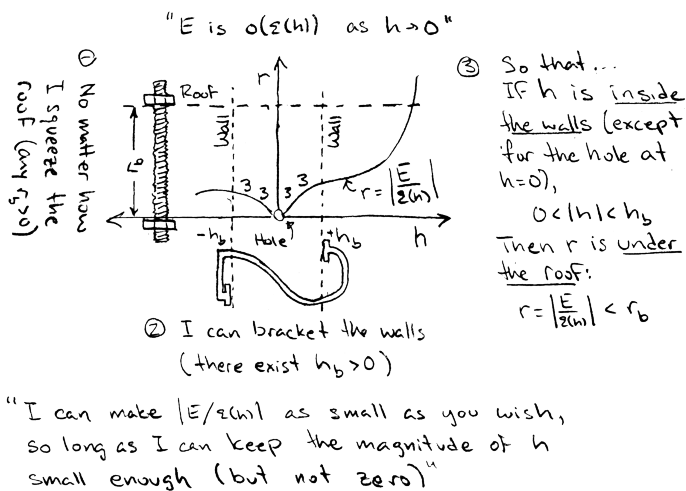 "E is o(Σ(h)) as h→0"
① No matter how
I squeeze the
roof (any r_b>0)
r
Roof
wall
wall
r_b
3 3 3 3
r = |E/Σ(h)|
-h_b
Hole
+h_b
h
② I can bracket the walls
(there exist h_b>0)
③ So that...
If h is inside
the walls (except
for the hole at
h=0),
0<|h|<h_b
Then r is under
the roof:
r=|E/Σ(h)| < r_b
"I can make |E/Σ(h)| as small as you wish,
so long as I can keep the magnitude of h
small enough (but not zero)"